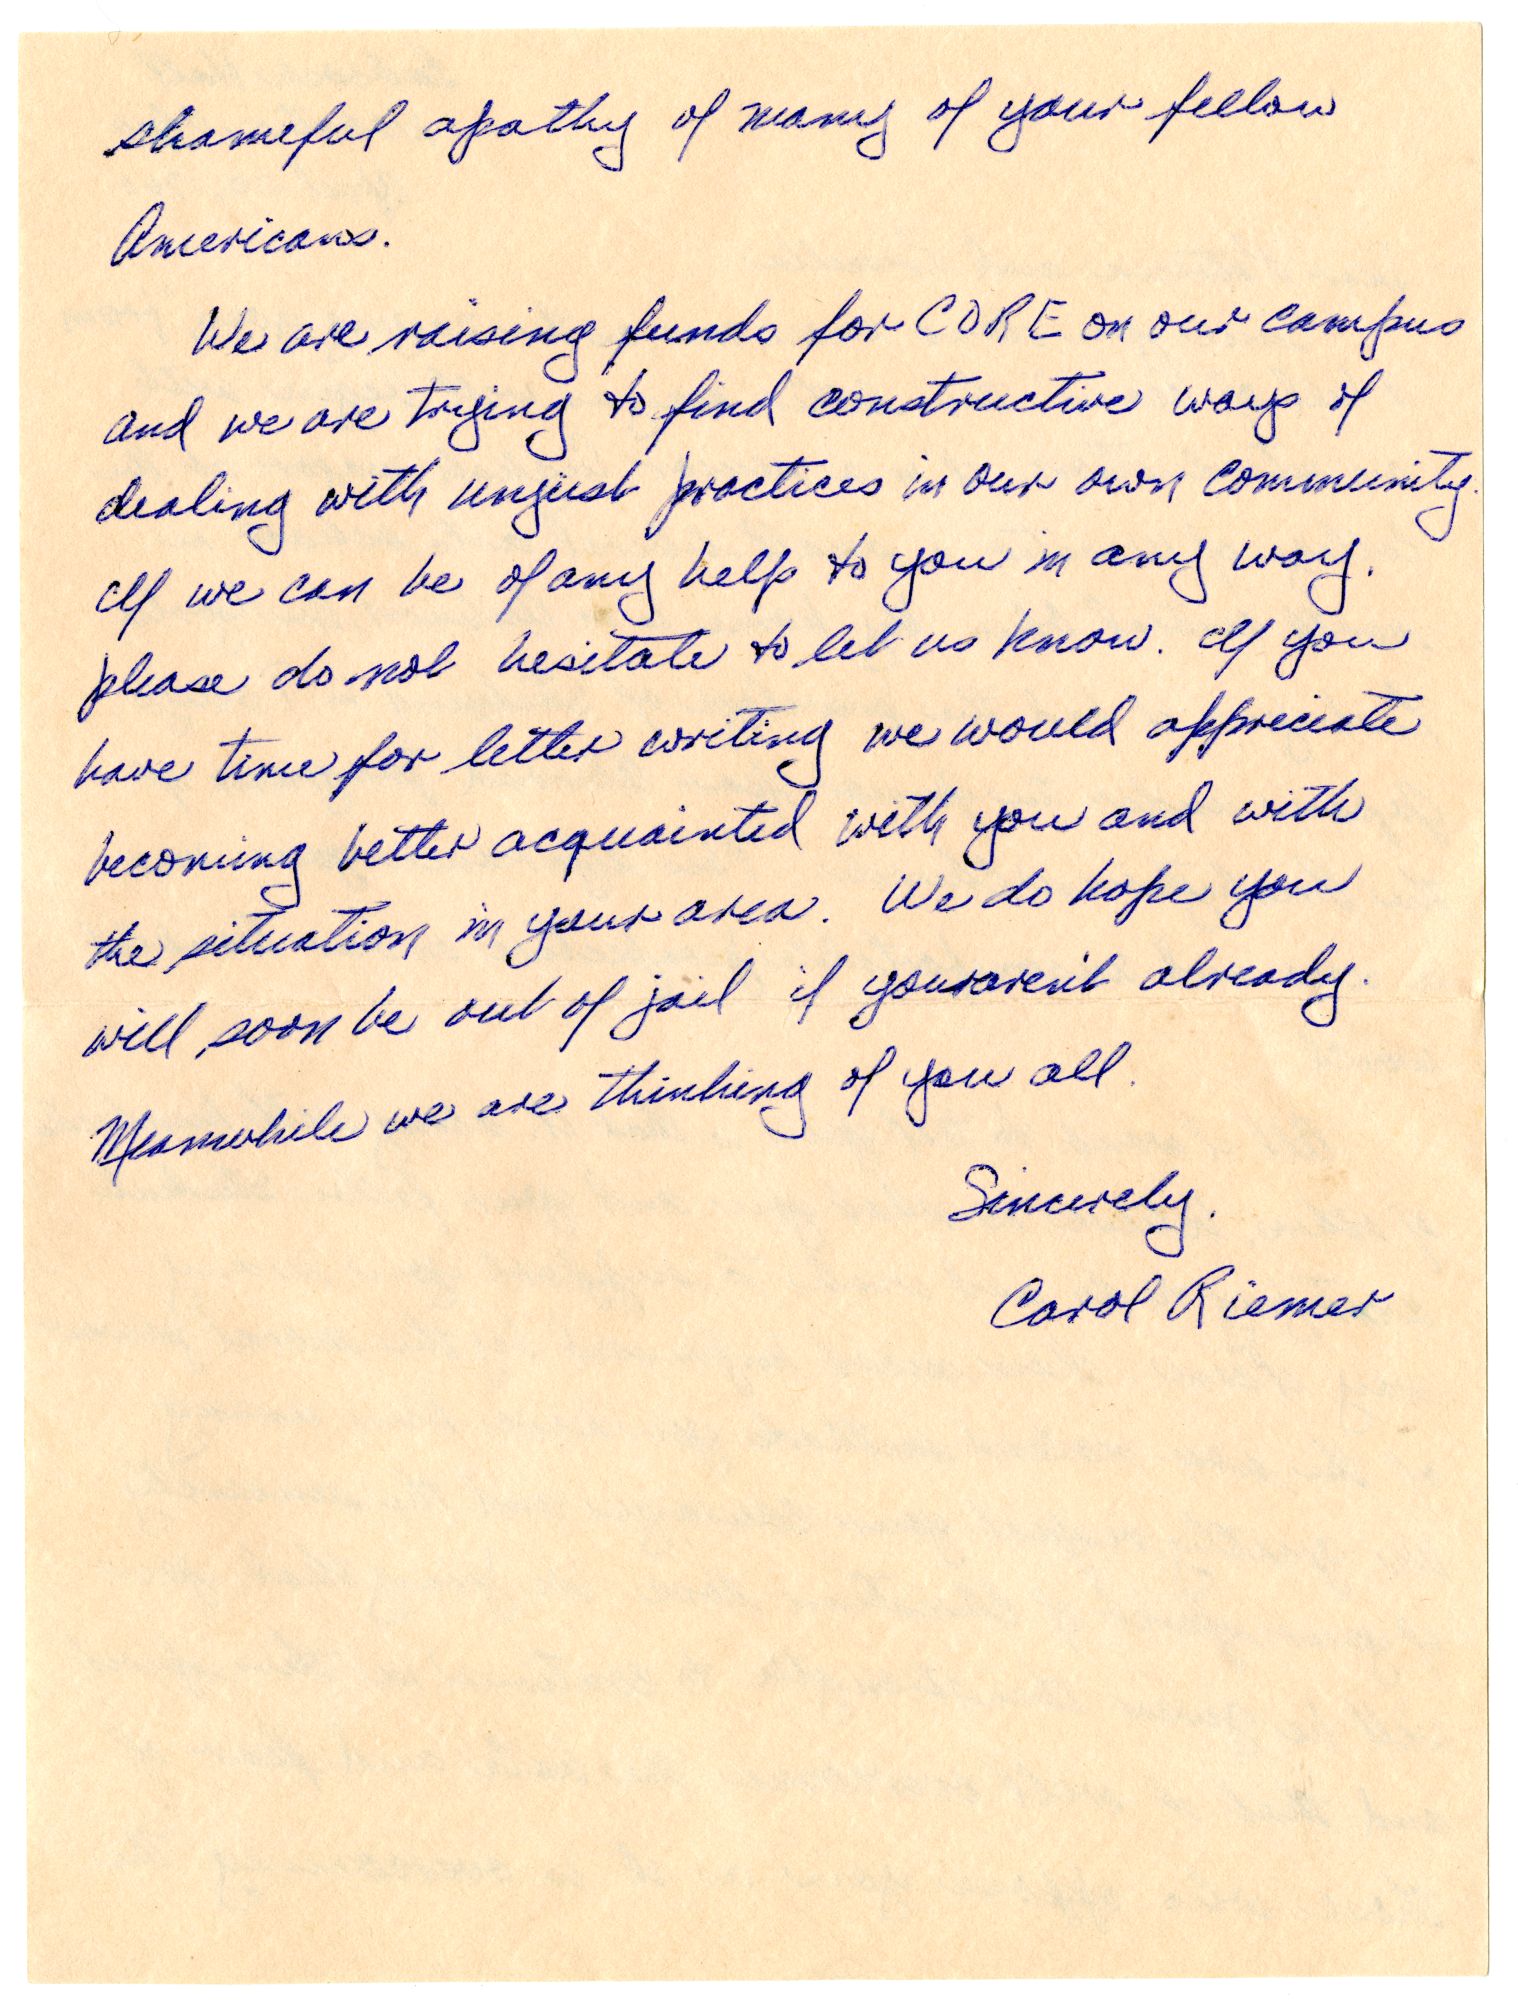 shameful apathy of many of your fellow
Americans.
We are raising funds for CORE on our campus
and we are trying to find constructive ways of
dealing with unjust practices in our own community.
If we can be of any help to you in any way,
please do not hesitate to let us know. If you
have time for letter writing we would appreciate
becoming better acquainted with you and with
the situation in your area. We do hope you
will soon be out of jail if you aren't already.
Meanwhile we are thinking of you all.
Sincerely,
Carol Riemer